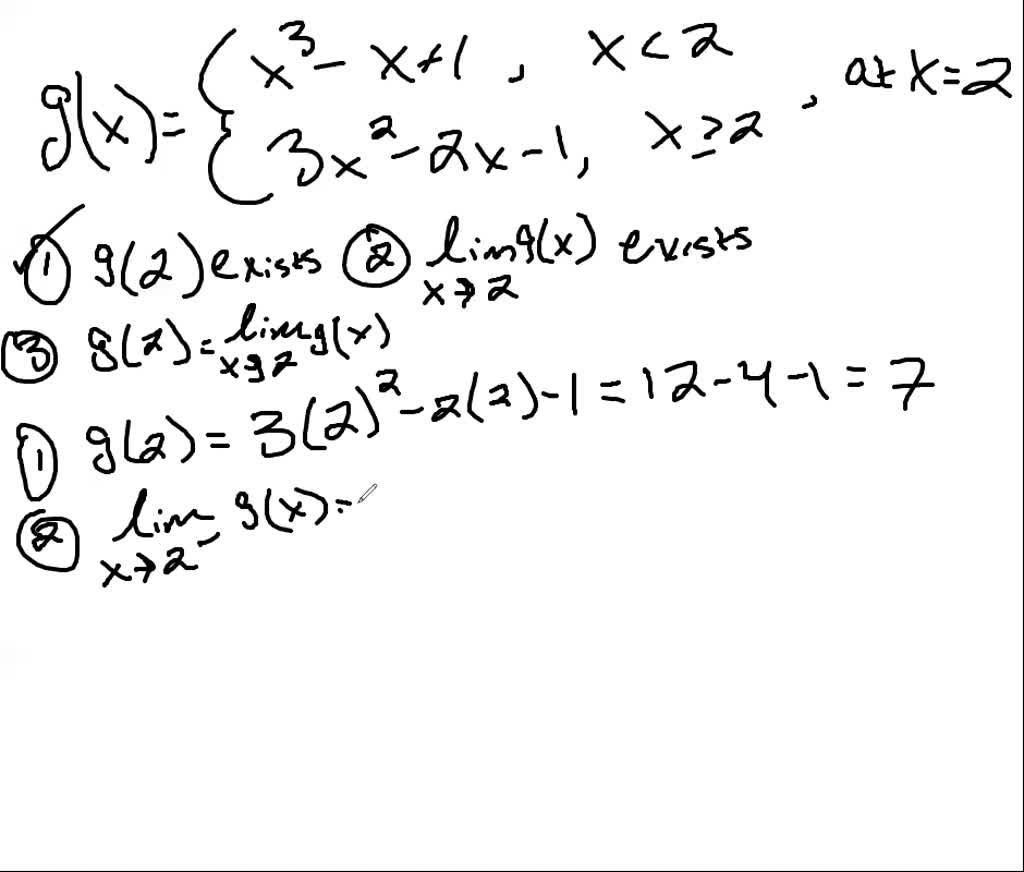 g(x) = { x³ - x + 1 , x < 2
3x² - 2x - 1, x ≥ 2 , at x = 2
① g(2) exists ② lim g(x) exists
x → 2
③ g(2) = lim g(x)
x → 2
① g(2) = 3(2)² - 2(2) - 1 = 12 - 4 - 1 = 7
② lim g(x) =
x → 2⁻